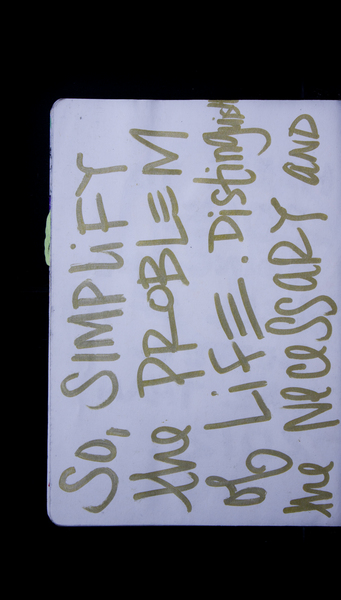 So, SIMPLiFY
the PROBLEM
of LiFE. Distinguish
the NecessaRY AND